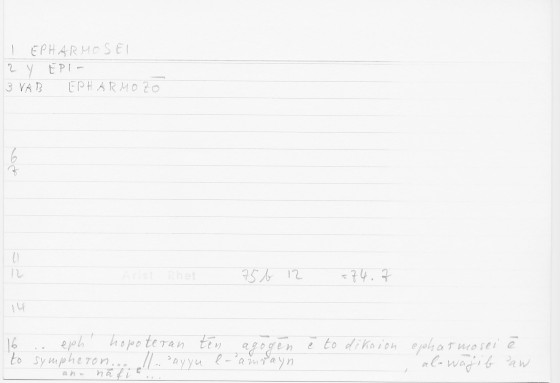 1 EPHARMOSEI
2 Y EPI-
3 VAB EPHARMOZŌ
6
7
11
12 Arist Rhet 75b 12 =74.7
14
16 .. eph' hopoteran tēn agōgēn ē to dikaion epharmosei ē
to sympheron... //.. ʾayyu l-ʾamrayn , al-wāǧib ʾaw
an-nāfiʿ...